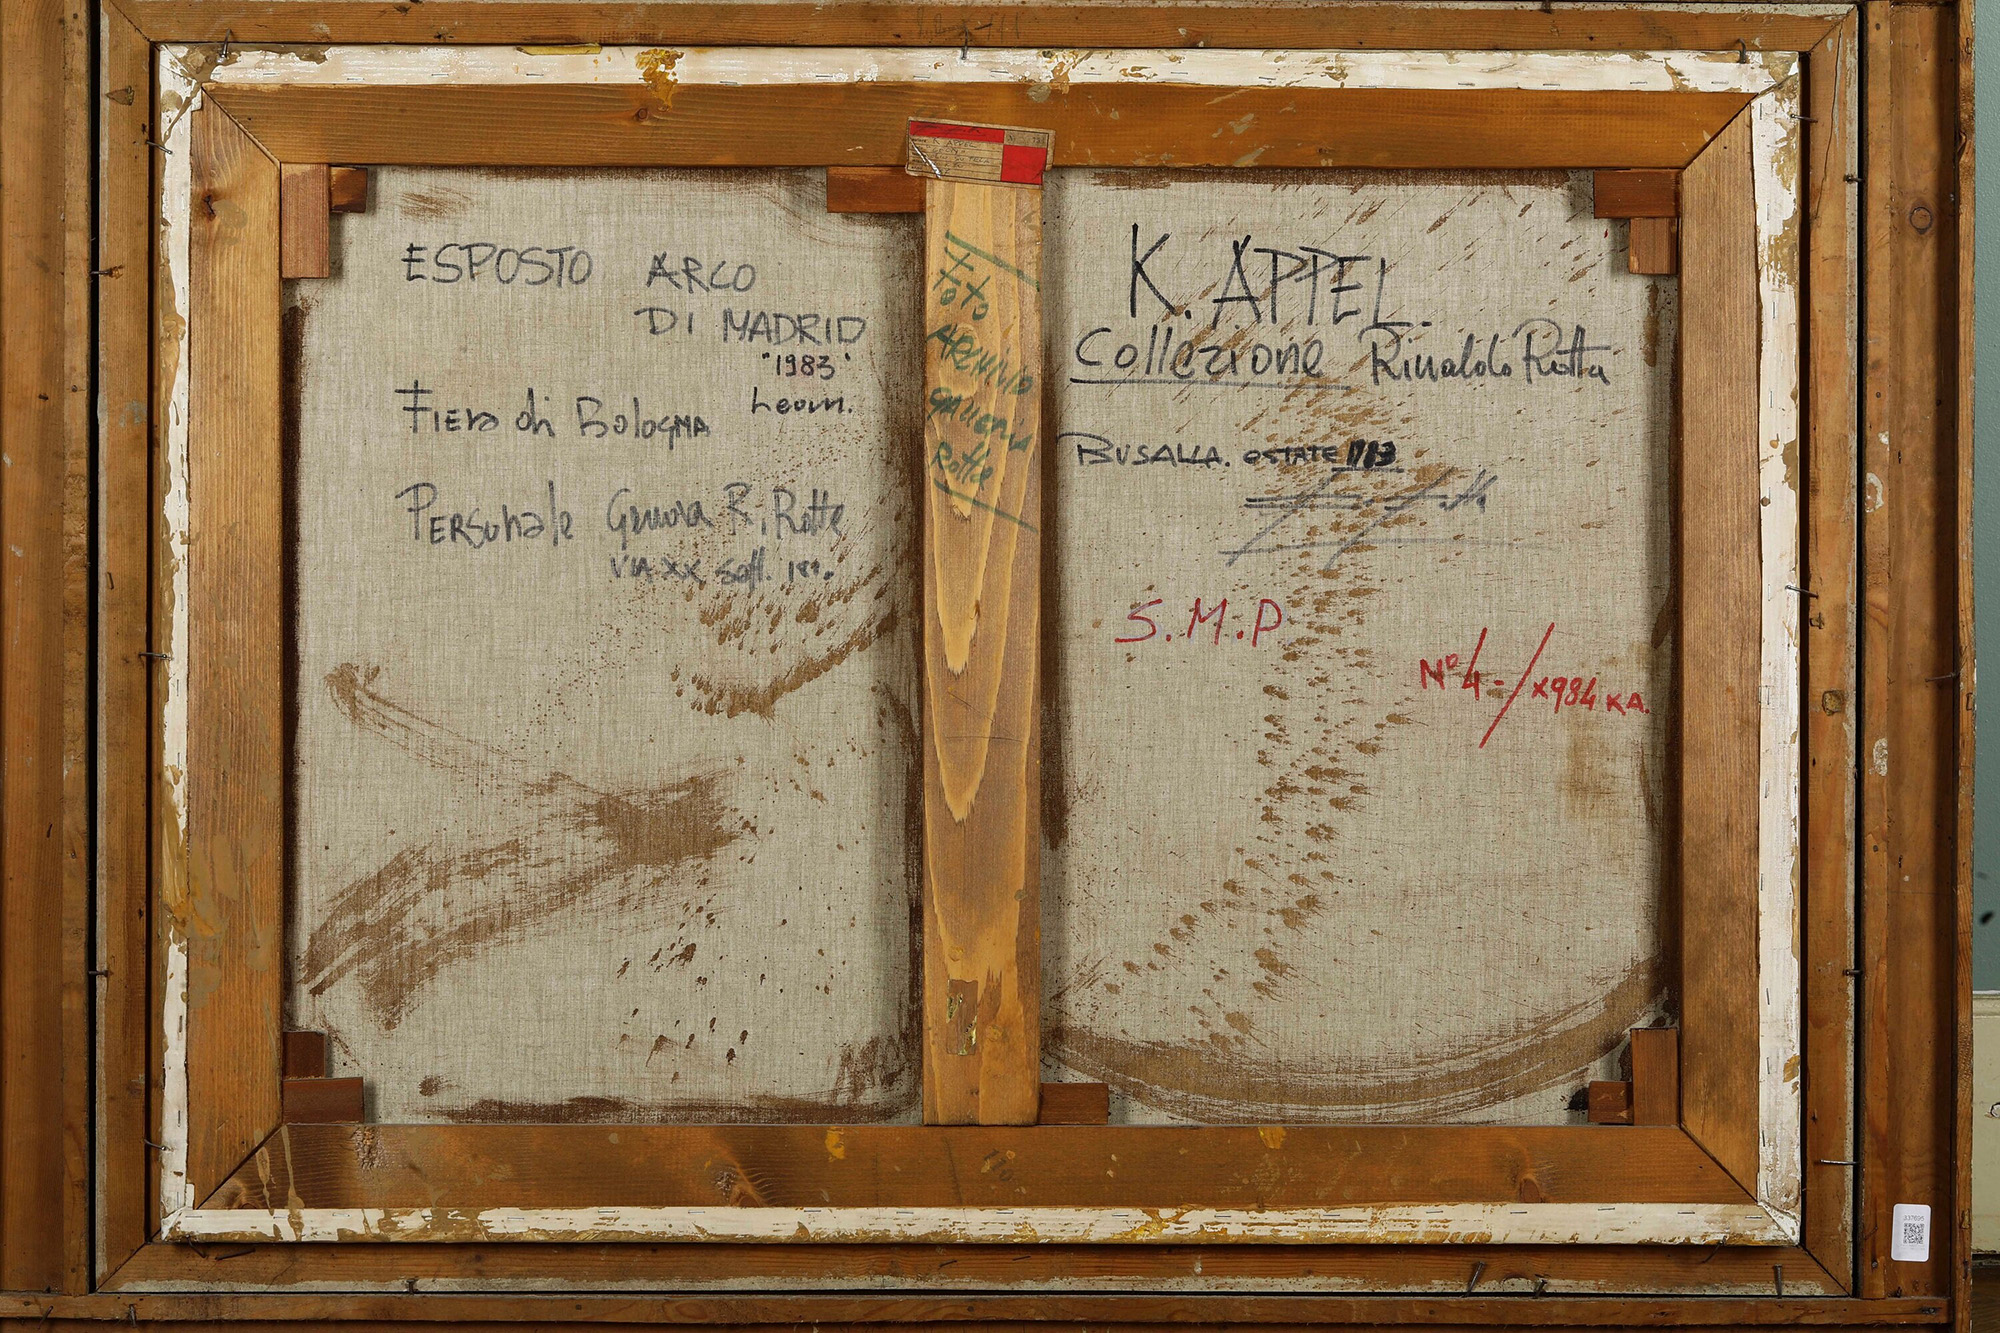 ESPOSTO ARCO
DI MADRID
"1983"
Fiera di Bologna
PERSONALE Genova R. Rotta
VIA XX Sett.
ARCHIVIO
GALLERIA
Rotta
K. APPEL.
Collezione Rinaldo Rotta
BUSALLA. ESTATE
S.M.P
No/4-/x984 KA.
K. APPEL
337695